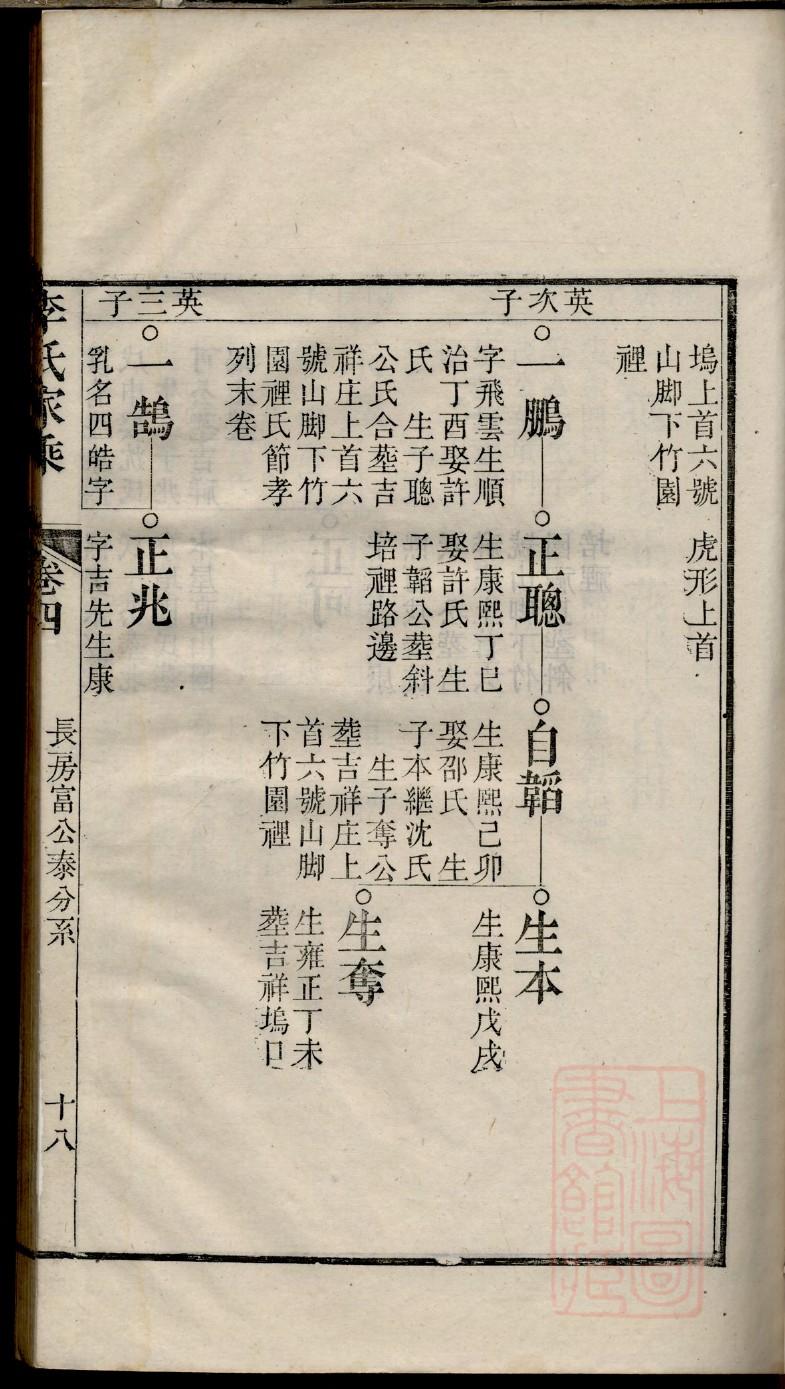 塢上首六號
山脚下竹園
裡
虎形上首
英次子
一鵬
字飛雲生順
治丁酉娶許
氏　生子聰
公氏合塟吉
祥庄上首六
號山脚下竹
園裡氏節孝
列末卷
正聰
生康熙丁巳
娶許氏　生
子韜公塟斜
培裡路邊
自韜
生康熙己卯
娶邵氏　生
子本繼沈氏
　生子奪公
塟吉祥庄上
首六號山脚
下竹園裡
生本
生康熙戊戌
生奪
生雍正丁未
塟吉祥塢口
英三子
一鵠
乳名四皓字
正兆
字吉先生康
李氏家乘
卷四
長房富公泰分系
十八
上海圖
書館藏